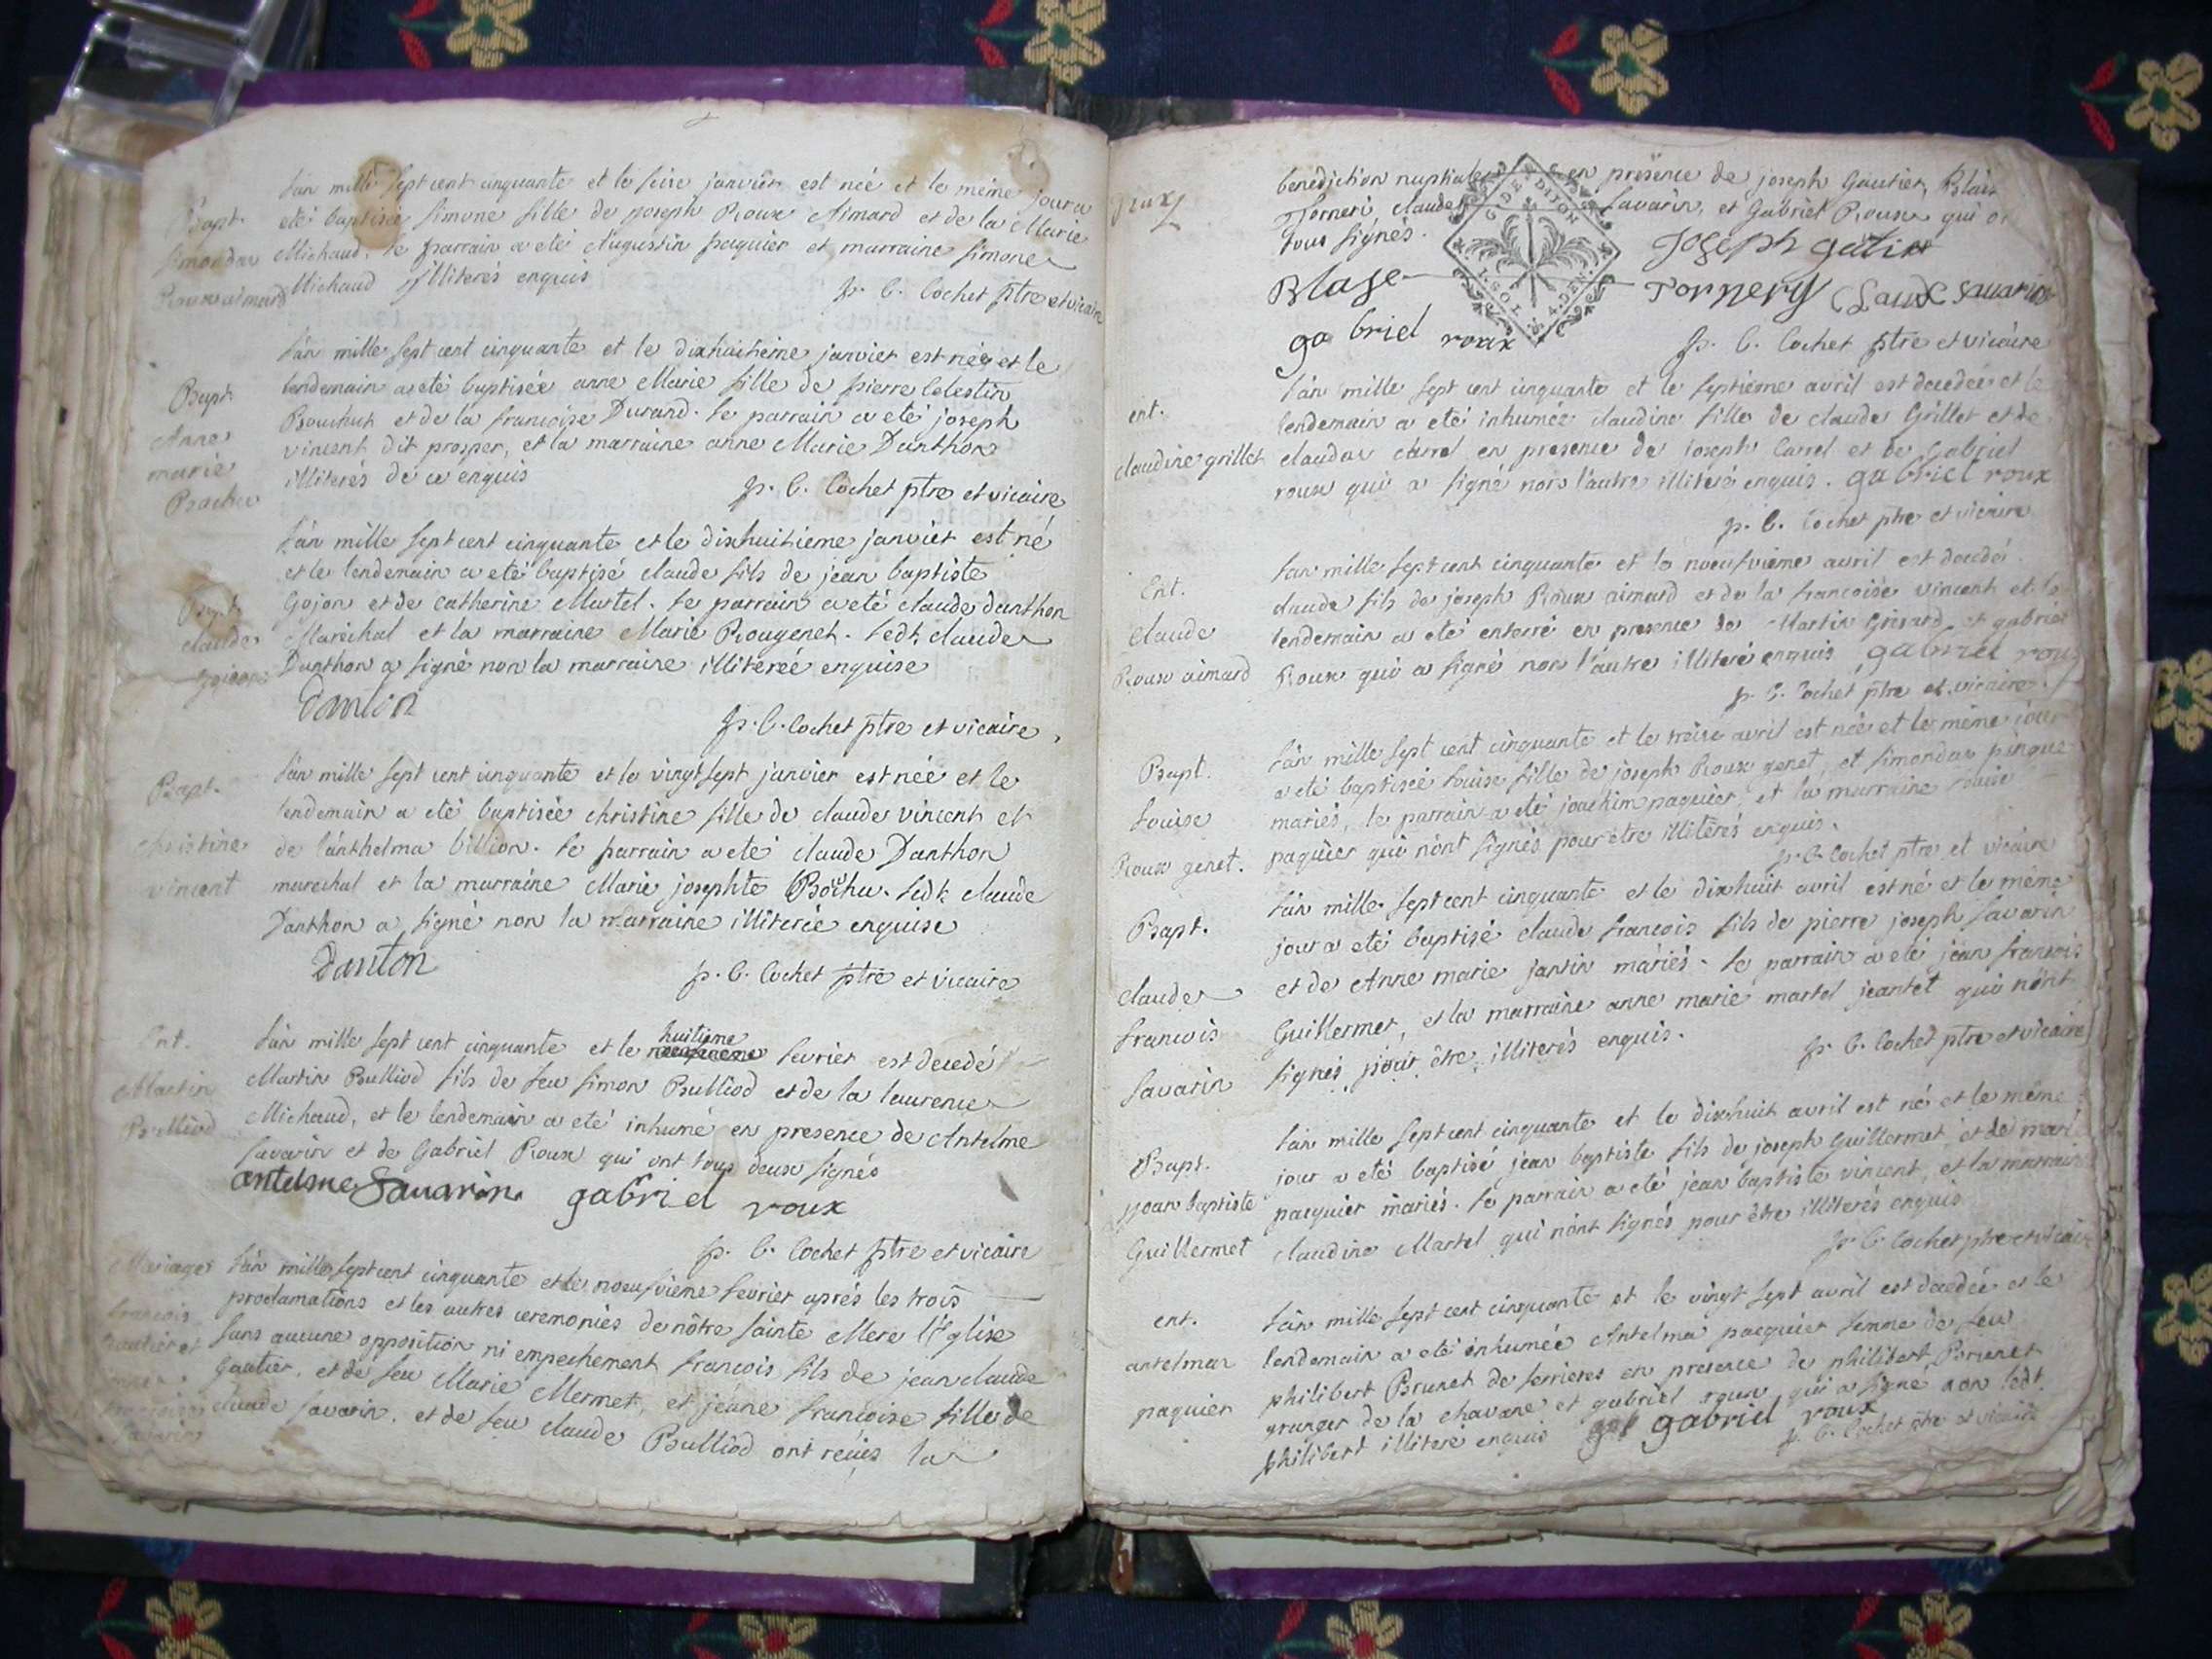 l'an mille sept cent cinquante et le seise janvier est née et le même jour a
Bapt. eté baptisée simone fille de joseph Roux Aimard et de la Marie
simonda Michaud, le parrain a eté Augustin paquier et marraine simone
Roux aimard Michaud illiterés enquis
p. C. Cochet ptre et vicaire
l'an mille sept cent cinquante et le dixhuitième janvier est née et le
Bapt. lendemain a eté baptisée anne Marie fille de pierre Celestin
Anne et de la francoise Durand. le parrain a eté joseph
marie vincent dit prosper, et la marraine anne Marie Danthon
illiterés de ce enquis
p. C. Cochet ptre et vicaire
l'an mille sept cent cinquante et le dixhuitieme janvier est né
et le lendemain a eté baptisé claude fils de jean baptiste
Bapt. Gojon et de catherine Martel. le parrain a eté claude danthon
claude Maréchal et la marraine Marie Rougenet. ledt claude
gojon Danthon a signé non la marraine illiterée enquise
Danton
p. C. Cochet ptre et vicaire
Bapt. l'an mille sept cent cinquante et le vingt sept janvier est née et le
lendemain a eté baptisée christine fille de claude vincent et
christine de l'anthelma billion. le parrain a eté claude Danthon
vincent marechal et la marraine Marie josephte Bochu. ledt claude
Danthon a signé non la marraine illiterée enquise
Danton
p. C. Cochet ptre et vicaire
Ent. l'an mille sept cent cinquante et le huitieme fevrier est decedé
Martin Martin Bulliod fils de feu simon Bulliod et de la laurence
Bulliod Michaud, et le lendemain a eté inhumé en presence de Antelme
savarin et de Gabriel Roux qui ont tous deux signés
antelme Savarin gabriel roux
p. C. Cochet ptre et vicaire
Mariage l'an mille sept cent cinquante et le noeufvieme fevrier aprés les trois
proclamations et les autres ceremonies de nôtre sainte Mere l'Eglise
francois sans aucune opposition ni empechement francois fils de jean claude
Gautier et gautier, et de feu Marie Mermet, et jeanne francoise fille de
francoise claude savarin, et de feu claude Bulliod ont reçus la
savarin
benediction nuptiale en présence de joseph Gautier, Blaise
Torneri, claude savarin, et Gabriel Roux qui
tous signés.
G. DE DIJON
Joseph gutier
Blase Tornery Claude sauarin
gabriel roux
p. C. Cochet ptre et vicaire
l'an mille sept cent cinquante et le septieme avril est decedée et le
ent. lendemain a eté inhumée claudine fille de claude Grillet et de
claudine grillet clauda carrel en presence de joseph Carrel et de Gabriel
roux qui a signé non l'autre illiteré enquis. gabriel roux
p. C. Cochet ptre et vicaire
l'an mille sept cent cinquante et le noeufvieme avril est decedé
Ent. claude fils de joseph Roux aimard et de la francoise vincent et le
claude lendemain a eté enterré en presence de Martin Grisard et gabriel
Roux aimard Roux qui a signé non l'autre illiteré enquis gabriel roux
p. C. Cochet ptre et vicaire.
l'an mille sept cent cinquante et le treise avril est née et le même jour
Bapt. a eté baptisée louise fille de joseph Roux genet, et simonda
Louise mariés, le parrain a eté joachim paquier, et la marraine louise
Roux genet. paquier qui n'ont signés pour être illiterés enquis.
p. C. Cochet ptre et vicaire
l'an mille sept cent cinquante et le dixhuit avril est né et le même
Bapt. jour a eté baptisé claude francois fils de pierre joseph savarin
et de Anne marie jantin mariés. le parrain a eté jean francois
claude Guillermet, et la marraine anne marie martel jeantet qui n'ont
francois signés pour être illiterés enquis.
savarin p. C. Cochet ptre et vicaire
l'an mille sept cent cinquante et le dixhuit avril est né et le même
Bapt. jour a eté baptisé jean baptiste fils de joseph Guillermet et de marie
jean baptiste pacquier mariés. le parrain a eté jean baptiste vincent, et la marraine
Guillermet claudine Martel qui n'ont signés pour être illiterés enquis
p. C. Cochet ptre et vicaire
l'an mille sept cent cinquante et le vingt sept avril est decedée et le
ent. lendemain a eté inhumée Antelma pacquier femme de feu
antelma philibert Brunet de ferrieres en presence de philibert Brunet
paquier granger de la chavane et gabriel roux qui a signé non ledt.
philibert illiteré enquis gabriel roux
p. C. Cochet ptre et vicaire